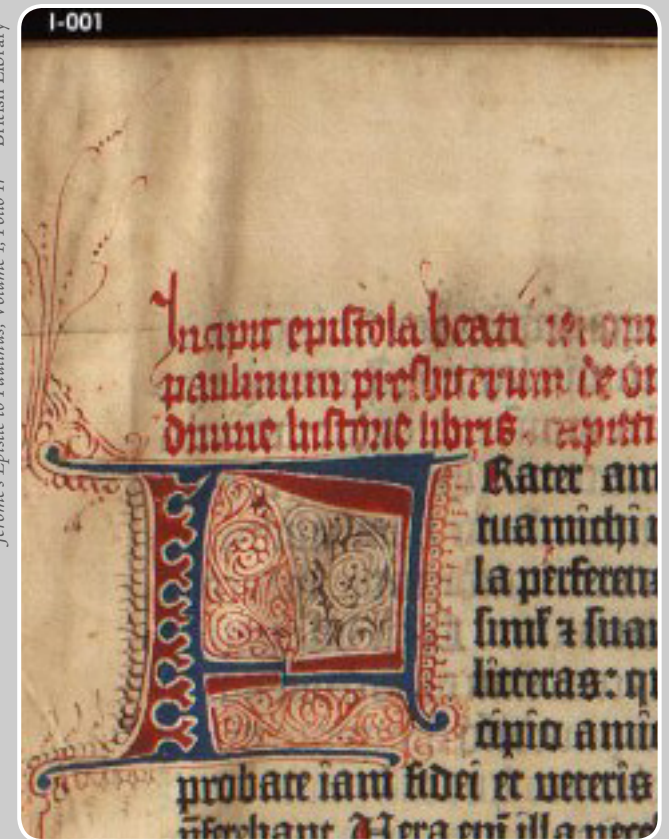 I-001
Jerome's Epistle to Paulinus, Volume I, Folio 1r British Library
Incipit epistola beati
paulinum presbiterum de
diuine historie libris.
Frater am
tua michi
la perferens
simł ⁊ sua
litteras: q
cipio ami
probate iam fidei et veteris
Vera illa